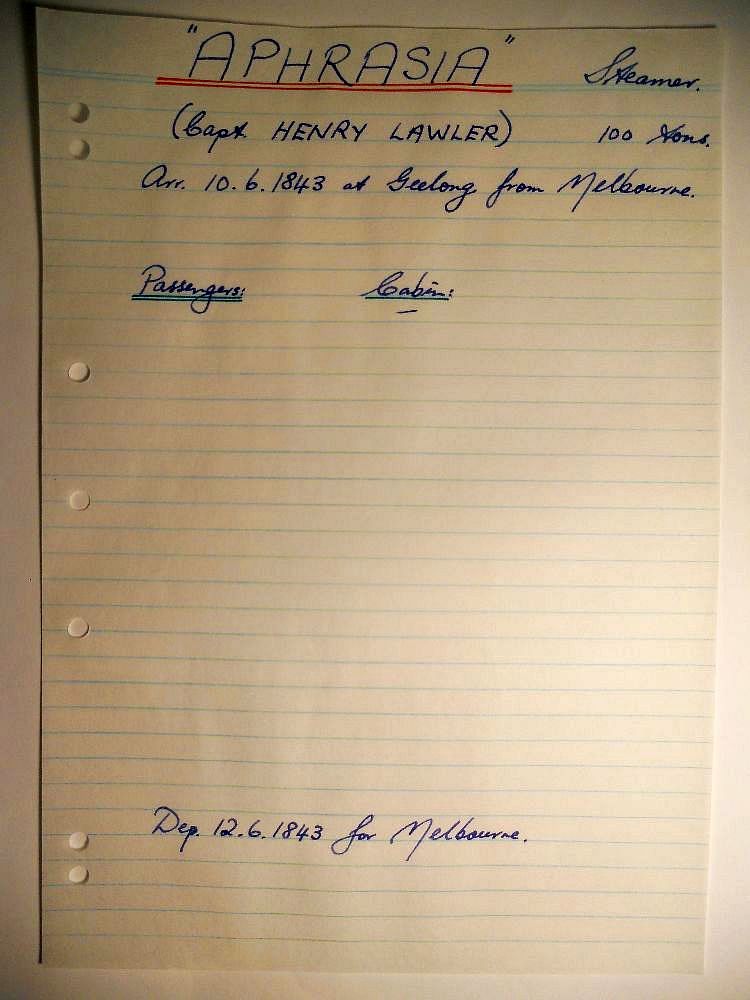 "APHRASIA" Steamer.
(Capt. HENRY LAWLER) 100 Tons.
Arr. 10.6.1843 at Geelong from Melbourne.
Passengers: Cabin:
Dep. 12.6.1843 for Melbourne.